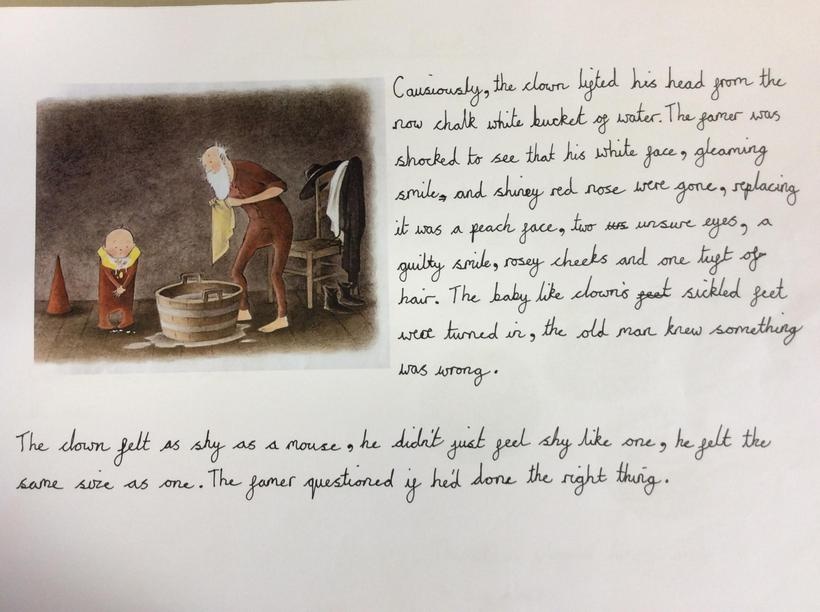 Causiously, the clown lifted his head from the
now chalk white bucket of water. The famer was
shocked to see that his white face, gleaming
smile, and shiney red nose were gone, replacing
it was a peach face, two unsure eyes, a
guilty smile, rosey cheeks and one tuft of
hair. The baby like clown's feet sickled feet
were turned in, the old man knew something
was wrong.
The clown felt as shy as a mouse, he didn't just feel shy like one, he felt the
same size as one. The famer questioned if he'd done the right thing.